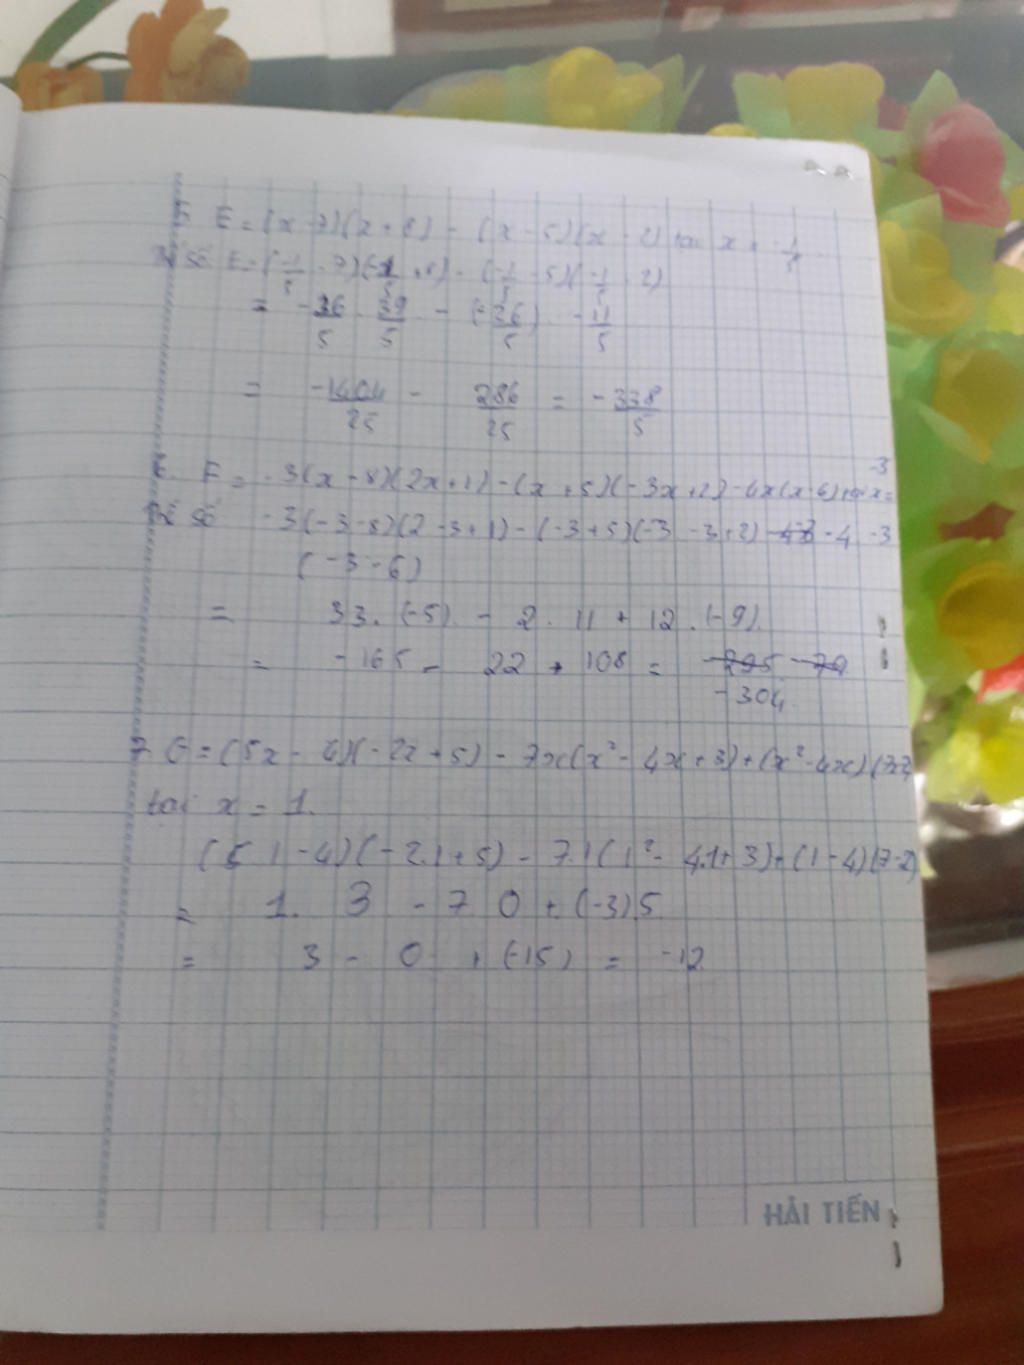 5. E = (x-7)(x+8) - (x-5)(x-2) tại x = -1/5
Thế số E = (-1/5 - 7)(-1/5 + 8) - (-1/5 - 5)(-1/5 - 2)
= -36/5 . 39/5 - (-26/5) . -11/5
= -1404/25 - 286/25 = -338/5
6. F = -3(x-8)(2x+1) - (x+5)(-3x+2) - 4x(x-6) tại x = -3
Thế số -3(-3-8)(2 -3+1) - (-3+5)(-3 -3+2) -4 -3
(-3-6)
= 33.(-5) - 2. 11 + 12.(-9)
= -165 - 22 + 108 =
-304
7. G = (5x-4)(-2x+5) - 7x(x²-4x+3) + (x²-4x)(7x-2)
tại x = 1.
(5 1 - 4)(-2.1+5) - 7.1(1² - 4.1+3) + (1-4)(7-2)
= 1. 3 - 7 0 + (-3)5
= 3 - 0 + (-15) = -12
HẢI TIẾN